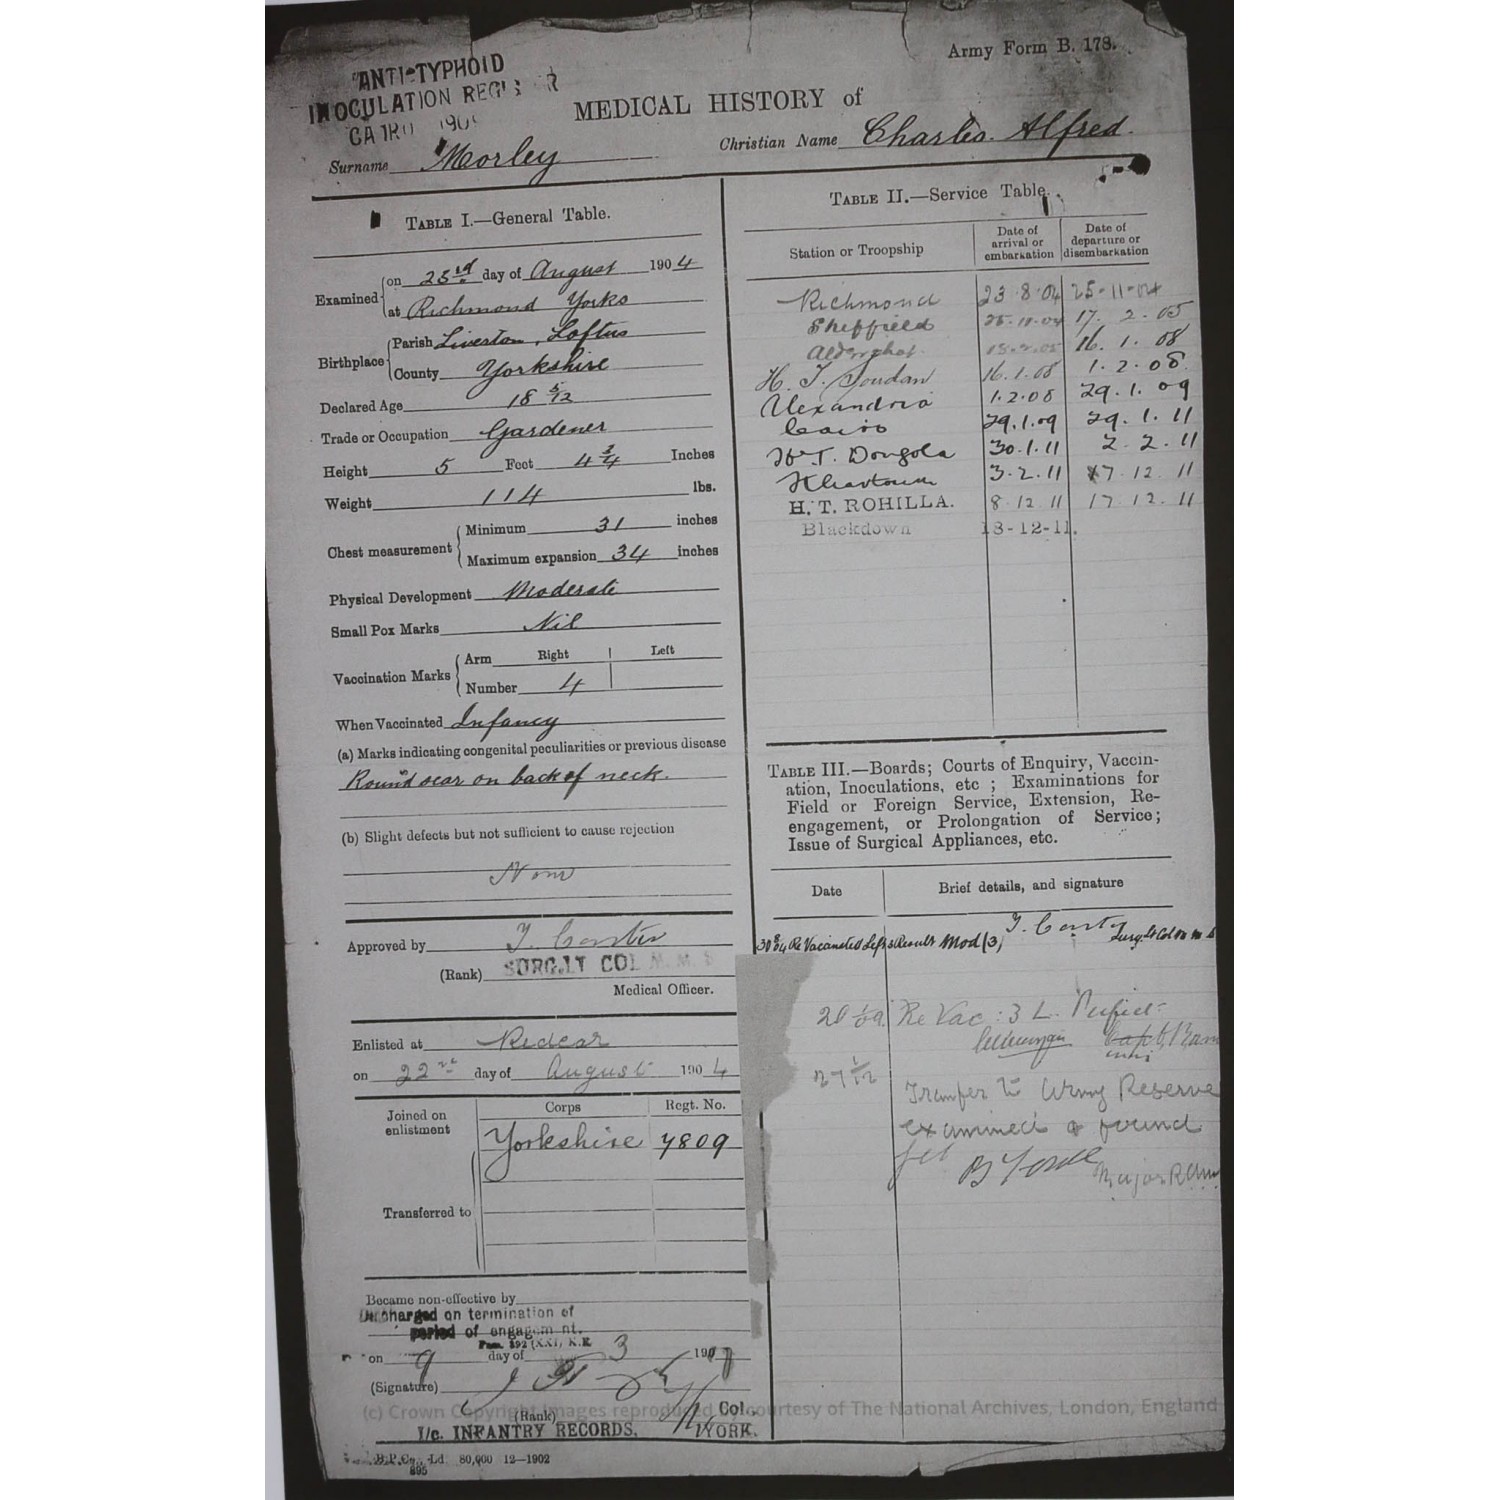 Army Form B. 178.
ANTI-TYPHOID
INOCULATION
CAIRO 190
MEDICAL HISTORY of
Surname Morley
Christian Name Charles Alfred.
TABLE I.—General Table.
Examined on 23rd day of August 1904
at Richmond Yorks
Birthplace Parish Liverton, Loftus
County Yorkshire
Declared Age 18 5/12
Trade or Occupation Gardener
Height 5 Feet 4 3/4 Inches
Weight 114 lbs.
Chest measurement Minimum 31 inches
Maximum expansion 34 inches
Physical Development Moderate
Small Pox Marks Nil
Vaccination Marks Arm Right Left
Number 4
When Vaccinated Infancy
(a) Marks indicating congenital peculiarities or previous disease
Round scar on back of neck.
(b) Slight defects but not sufficient to cause rejection
None
Approved by
(Rank) SURG. LT COL
Medical Officer.
Enlisted at Redcar
on 22nd day of August 1904
Corps Regt. No.
Joined on
enlistment
Yorkshire 7809
Transferred to
Became non-effective by
Discharged on termination of
period of engagement.
on 9 day of 3 191
(Signature)
(Rank) Col.
I/c. INFANTRY RECORDS. YORK.
80,000 12—1902
895
TABLE II.—Service Table.
Station or Troopship
Date of
arrival or
embarkation
Date of
departure or
disembarkation
Richmond 23.8.04 25-11-04
Sheffield 25.11.04 17.2.05
Aldershot 16.1.08
H.T. Soudan 16.1.08 1.2.08
Alexandria 1.2.08 29.1.09
Cairo 29.1.09 29.1.11
Dongola 30.1.11 2.2.11
Khartoum 3.2.11 7.12.11
H.T. ROHILLA. 8.12.11 17.12.11
Blackdown 18-12-11.
TABLE III.—Boards; Courts of Enquiry, Vaccin-
ation, Inoculations, etc ; Examinations for
Field or Foreign Service, Extension, Re-
engagement, or Prolongation of Service;
Issue of Surgical Appliances, etc.
Date Brief details, and signature
30 8/04 Re Vaccinated Left Result Mod (3)
Re Vac: 3 L.
27 1/12
Transfer to Army Reserve
examined & found
fit
Major RAMC
(c) Crown Copyright Images reproduced by courtesy of The National Archives, London, England